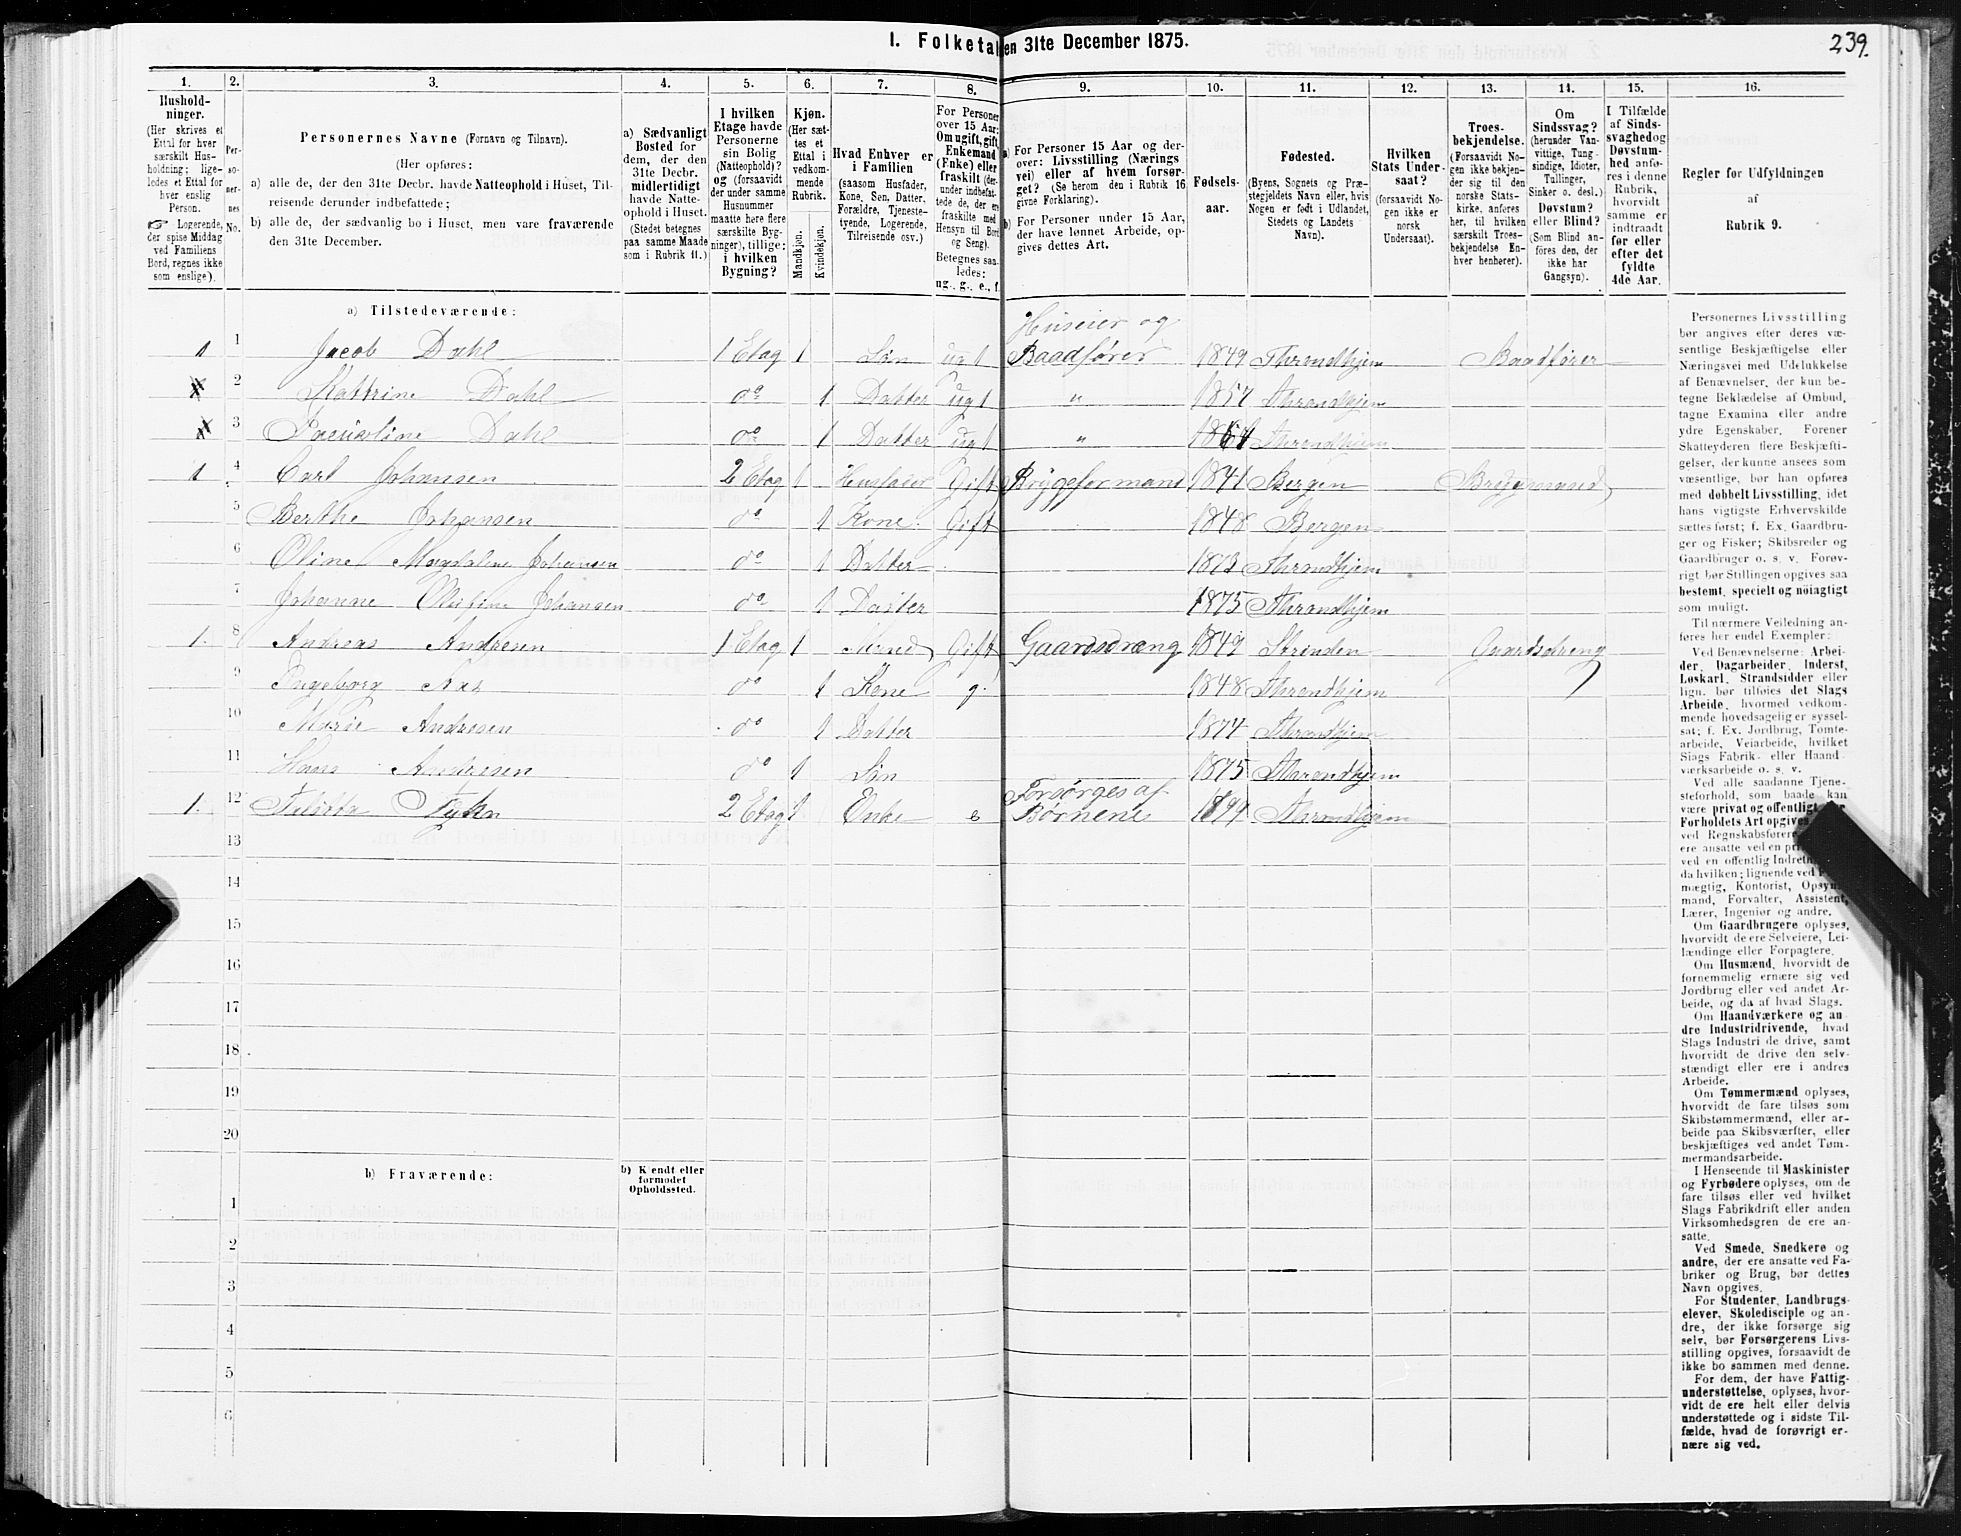 I. Folketal den 31te December 1875.
239.
1. 2. 3. 4. 5. 6. 7. 8. 9. 10. 11. 12. 13. 14. 15. 16.
Hushold-
ninger.
(Her skrives et
Ettal for hver
særskilt Hus-
holdning; lige-
ledes et Ettal for
hver enslig
Person.
☞ Logerende,
der spise Middag
ved Familiens
Bord, regnes ikke
som enslige).
Per-
so-
ner-
nes
No.
Personernes Navne (Fornavn og Tilnavn).
(Her opføres:
a) alle de, der den 31te Decbr. havde Natteophold i Huset, Til-
reisende derunder indbefattede;
b) alle de, der sædvanlig bo i Huset, men vare fraværende
den 31te December.
a) Sædvanligt
Bosted for
dem, der den
31te Decbr.
midlertidigt
havde Natte-
ophold i Huset.
(Stedet betegnes
paa samme Maade
som i Rubrik 11.)
I hvilken
Etage havde
Personerne
sin Bolig
(Natteophold)?
og (forsaavidt
der under samme
Husnummer
maatte høre flere
særskilte Byg-
ninger), tillige:
i hvilken
Bygning?
Kjøn.
(Her sæt-
tes et
Ettal i
vedkom-
mende
Rubrik.
Mandkjøn.
Kvindekjøn.
Hvad Enhver er
i Familien
(saasom Husfader,
Kone, Søn, Datter,
Forældre, Tjeneste-
tyende, Logerende,
Tilreisende osv.)
For Personer
over 15 Aar:
Om ugift, gift,
Enkemand
(Enke) eller
fraskilt (der-
under indbefat-
tede de, der ere
fraskilte med
Hensyn til Bord
og Seng).
Betegnes saa-
ledes:
ug., g., e., f.
a) For Personer 15 Aar og der-
over: Livsstilling (Nærings
vei) eller af hvem forsør-
get? (Se herom den i Rubrik 16
givne Forklaring).
b) For Personer under 15 Aar,
der have lønnet Arbeide, op-
gives dettes Art.
Fødsels-
aar.
Fødested.
(Byens, Sognets og Præ-
stegjeldets Navn eller, hvis
Nogen er født i Udlandet,
Stedets og Landets
Navn).
Hvilken
Stats Under-
saat?
(forsaavidt No-
gen ikke er
norsk
Undersaat).
Troes-
bekjendelse.
(Forsaavidt No-
gen ikke bekjen-
der sig til den
norske Stats-
kirke, anføres
her, til hvilken
særskilt Troes-
bekjendelse En-
hver henhører).
Om
Sindssvag?
(herunder Van-
vittige, Tung-
sindige, Idioter,
Tullinger,
Sinker o. desl.)
Døvstum?
eller Blind?
(Som Blind an-
føres den, der
ikke har
Gangsyn).
I Tilfælde
af Sinds-
svaghed og
Døvstum-
hed anfø-
res i denne
Rubrik,
hvorvidt
samme er
indtraadt
før eller
efter det
fyldte
4de Aar.
Regler for Udfyldningen
af
Rubrik 9.
a) Tilstedeværende:
Huseier og
1 1 Jacob Dahl 1 Etag 1 Søn ugt Baadfører 1849 Throndhjem Baadfører
2 Kattrine Dahl do 1 Datter ugt " 1857 Throndhjem
3 Dahl do 1 Datter ugt " Throndhjem
1 4 Carl Johansen 2 Etag 1 Husfader Gift Bryggeformand 1841 Bergen
5 Berthe Johansen do 1 Kone Gift 1848 Bergen
6 Oline Magdaline Johansen do 1 Datter 1873 Throndhjem
7 Johanne Olufine Johansen do 1 Datter 1875 Throndhjem
1. 8 Andreas Andresen 1 Etag 1 Mand Gift Gaardsdræng 1849 Strinden Gaardsdreng
9 Ingeborg Aas do 1 Kone g. 1848 Throndhjem
10 Marie Andresen do 1 Datter 1874 Throndhjem
11 Hans Andresen do 1 Søn 1875 Throndhjem
Forsørges af
1. 12 2 Etag 1 Enke e Børnene 1799 Throndhjem
13
14
15
16
17
18
19
20
b) Fraværende:
b) Kjendt eller
formodet
Opholdssted.
1
2
3
4
5
6
Personernes Livsstilling
bør angives efter deres væ-
sentlige Beskjæftigelse eller
Næringsvei med Udelukkelse
af Benævnelser, der kun be-
tegne Beklædelse af Ombud,
tagne Examina eller andre
ydre Egenskaber. Forener
Skatteyderen flere Beskjæfti-
gelser, der kunne ansees som
væsentlige, bør han opføres
med dobbelt Livsstilling, idet
hans vigtigste Erhvervskilde
sættes først; f. Ex. Gaardbru-
ger og Fisker; Skibsreder og
Gaardbruger o. s. v. Forøv-
rigt bør Stillingen opgives saa
bestemt, specielt og nøiagtigt
som muligt.
Til nærmere Veiledning an-
føres her endel Exempler:
Ved Benævnelserne: Arbei-
der, Dagarbeider, Inderst,
Løskarl, Strandsidder eller
lign. bør tilføies det Slags
Arbeide, hvormed vedkom-
mende hovedsagelig er syssel-
sat; f. Ex. Jordbrug, Tomte-
arbeide, Veiarbeide, hvilket
Slags Fabrik- eller Haand-
værksarbeide o. s. v.
Ved alle saadanne Tjene-
steforhold, som baade kan
være privat og offentligt bør
Forholdets Art opgives
ved Regnskabsførere
ere ansatte ved en pri
ved en offentlig Indretn
da hvilken; lignende ved F
mægtig, Kontorist, Opsyns
mand, Forvalter, Assistent,
Lærer, Ingeniør og andre.
Om Gaardbrugere oplyses,
hvorvidt de ere Selveiere, Lei-
lændinge eller Forpagtere.
Om Husmænd, hvorvidt de
fornemmelig ernære sig ved
Jordbrug eller ved andet Ar-
beide, og da af hvad Slags.
Om Haandværkere og an-
dre Industridrivende, hvad
Slags Industri de drive, samt
hvorvidt de drive den selv-
stændigt eller ere i andres
Arbeide.
Om Tømmermænd oplyses,
hvorvidt de fare tilsøs som
Skibstømmermænd, eller ar-
beide paa Skibsværfter, eller
beskjæftiges ved andet Tøm-
mermandsarbeide.
I Henseende til Maskinister
og Fyrbødere oplyses, om de
fare tilsøs eller ved hvilket
Slags Fabrikdrift eller anden
Virksomhedsgren de ere an-
satte.
Ved Smede, Snedkere og
andre, der ere ansatte ved Fa-
briker og Brug, bør dettes
Navn opgives.
For Studenter, Landbrugs-
elever, Skoledisciple og an-
dre, der ikke forsørge sig
selv, bør Forsørgerens Livs-
stilling opgives, forsaavidt de
ikke bo sammen med denne.
For dem, der have Fattig-
understøttelse, oplyses, hvor-
vidt de ere helt eller delvis
understøttede og i sidste Til-
fælde, hvad de forøvrigt er-
nære sig ved.